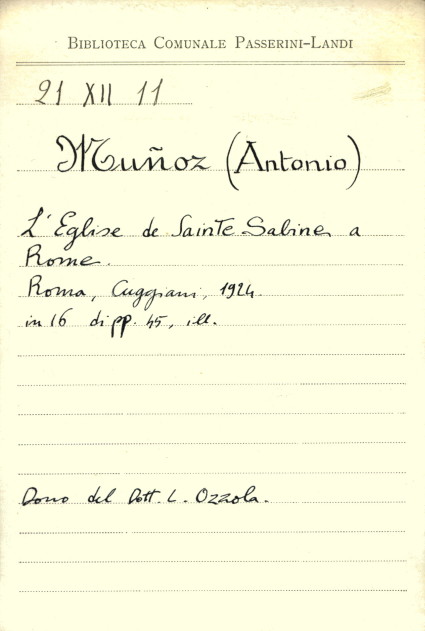 BIBLIOTECA COMUNALE PASSERINI-LANDI
21 XII 11
Muñoz (Antonio)
L'Eglise de Sainte Sabine a
Rome.
Roma, Cuggiani, 1924.
in 16 di pp. 45, ill.
Dono del Dott. L. Ozzola.